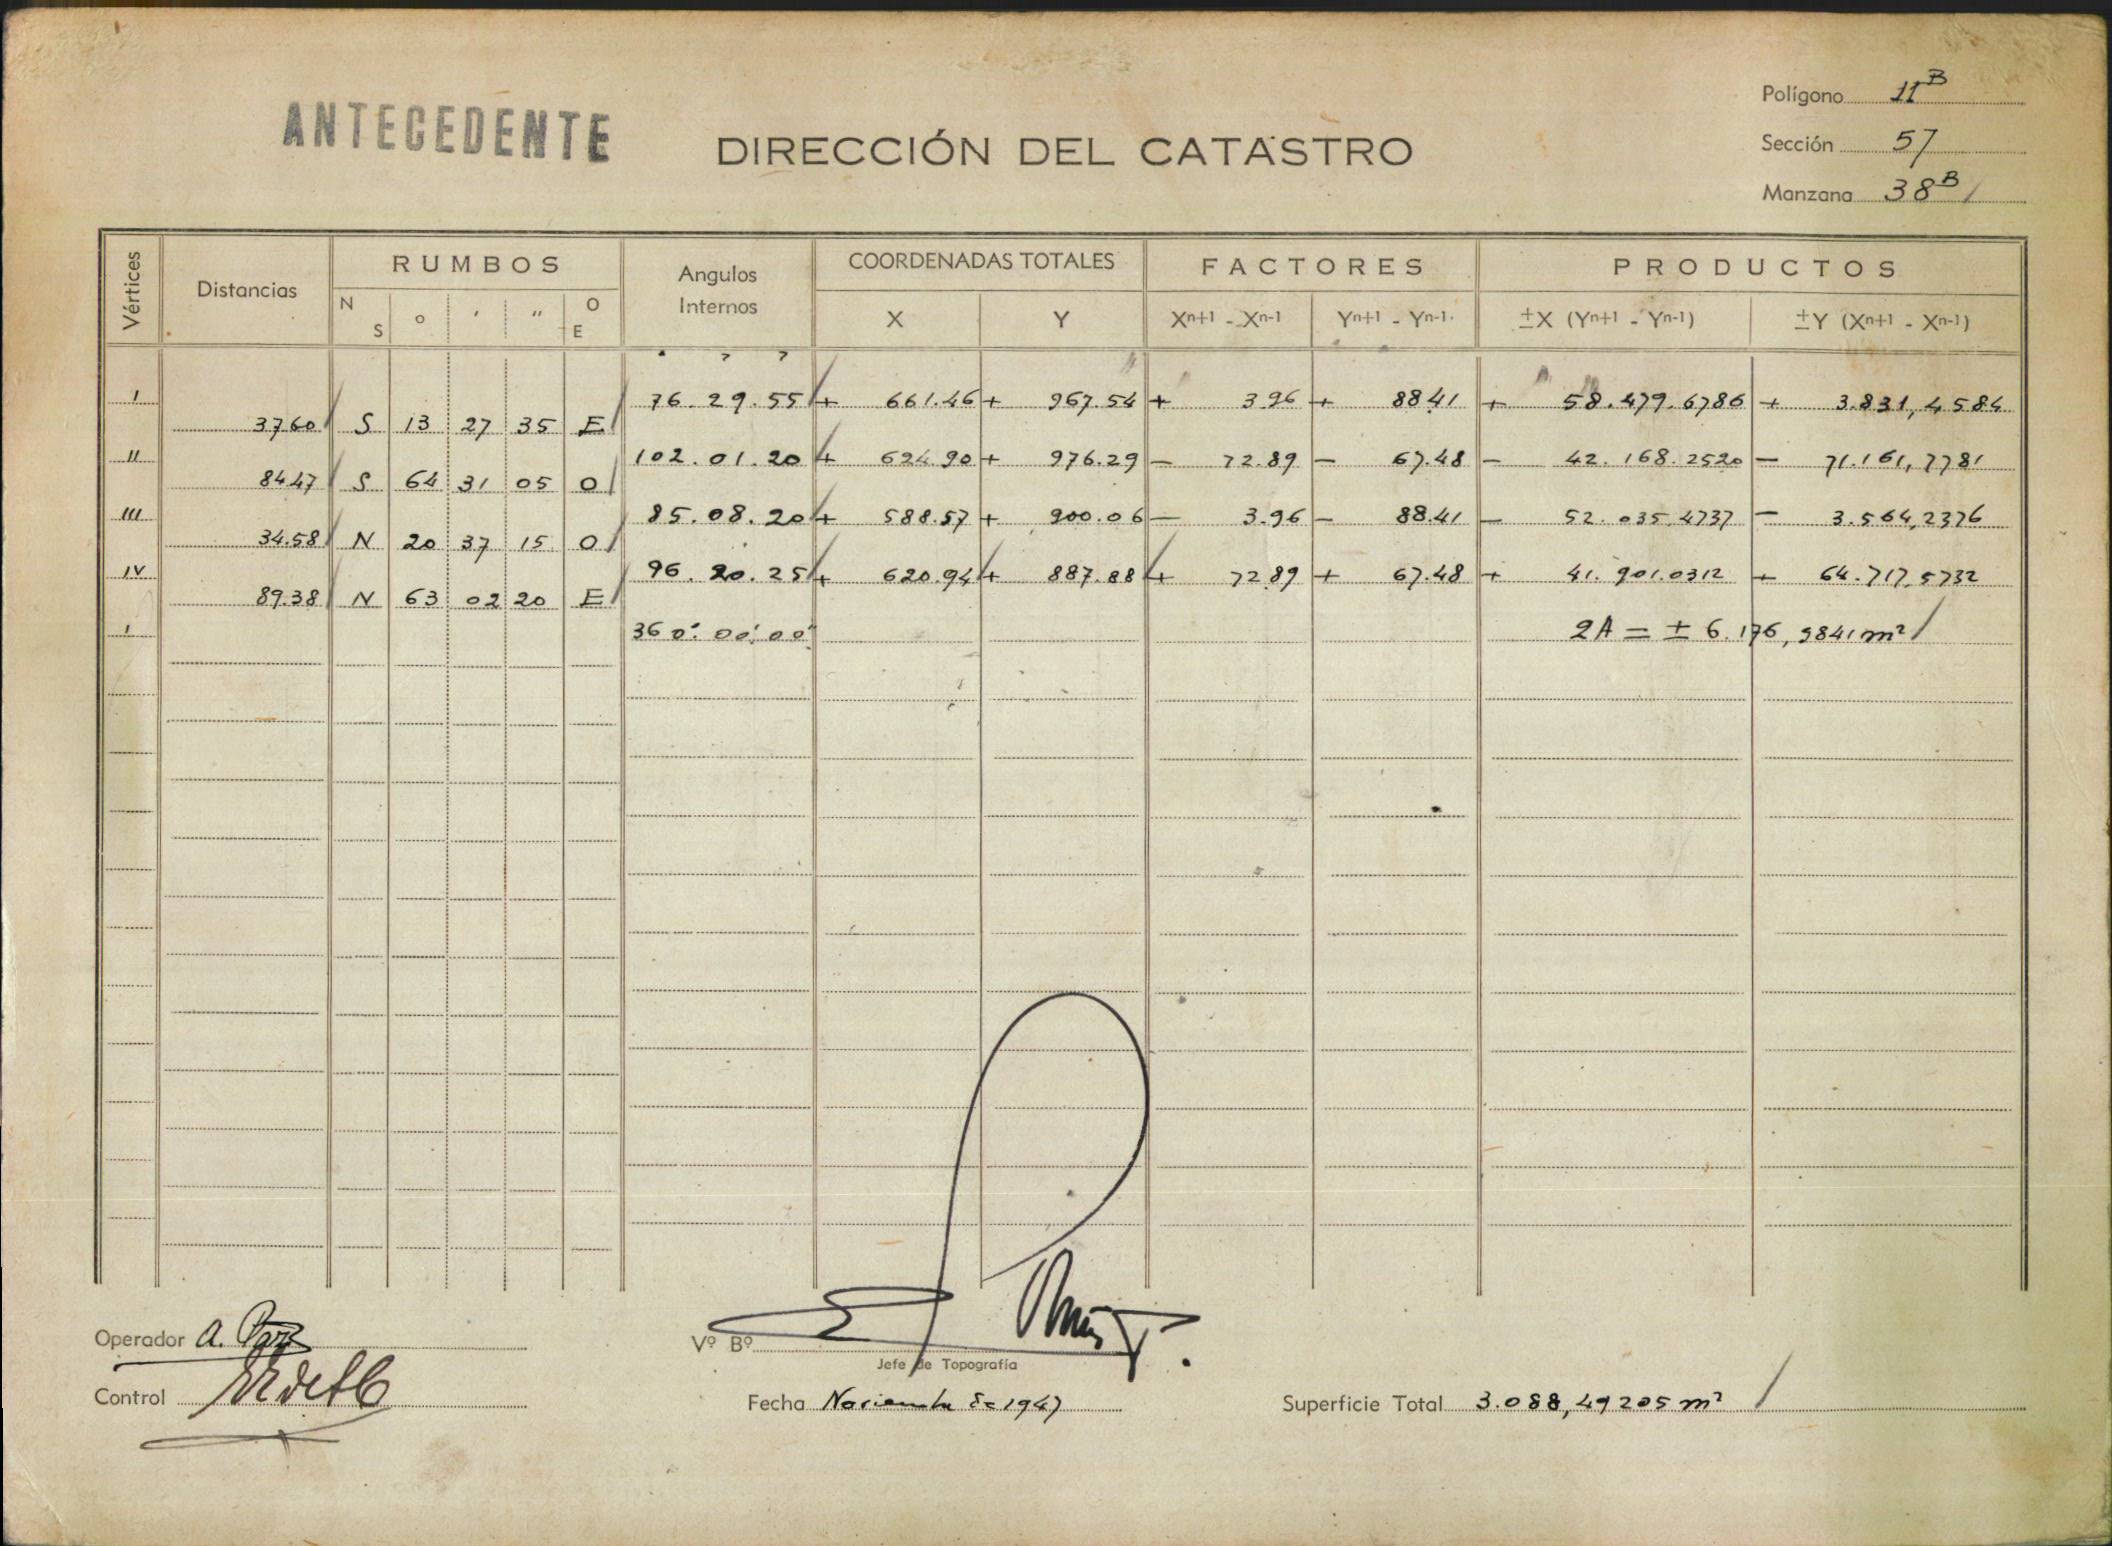 ANTECEDENTE
DIRECCIÓN DEL CATASTRO
Polígono 11B
Sección 57
Manzana 38B
Vértices Distancias RUMBOS Angulos Internos COORDENADAS TOTALES FACTORES PRODUCTOS
N S o ' '' O E X Y Xn+1 - Xn-1 Yn+1 - Yn-1 ±X (Yn+1 - Yn-1) ±Y (Xn+1 - Xn-1)
I 76.29.55 + 661.46 + 967.54 + 3.96 + 88.41 + 58.479.6786 + 3.831,4584
37.60 S 13 27 35 E
II 102.01.20 + 624.90 + 976.29 - 72.89 - 67.48 - 42.168.2520 - 71.161,7781
84.47 S 64 31 05 O
III 85.08.20 + 588.57 + 900.06 - 3.96 - 88.41 - 52.035.4737 - 3.564,2376
34.58 N 20 37 15 O
IV 96.20.25 + 620.94 + 887.88 + 72.89 + 67.48 + 41.901.0312 + 64.717,5732
89.38 N 63 02 20 E
I 360°.00'.00" 2A = ± 6.176,9841 m²
Operador A. Paz
Vº Bº
Jefe de Topografía
Control
Fecha Noviembre de 1947
Superficie Total 3.088,49205 m²